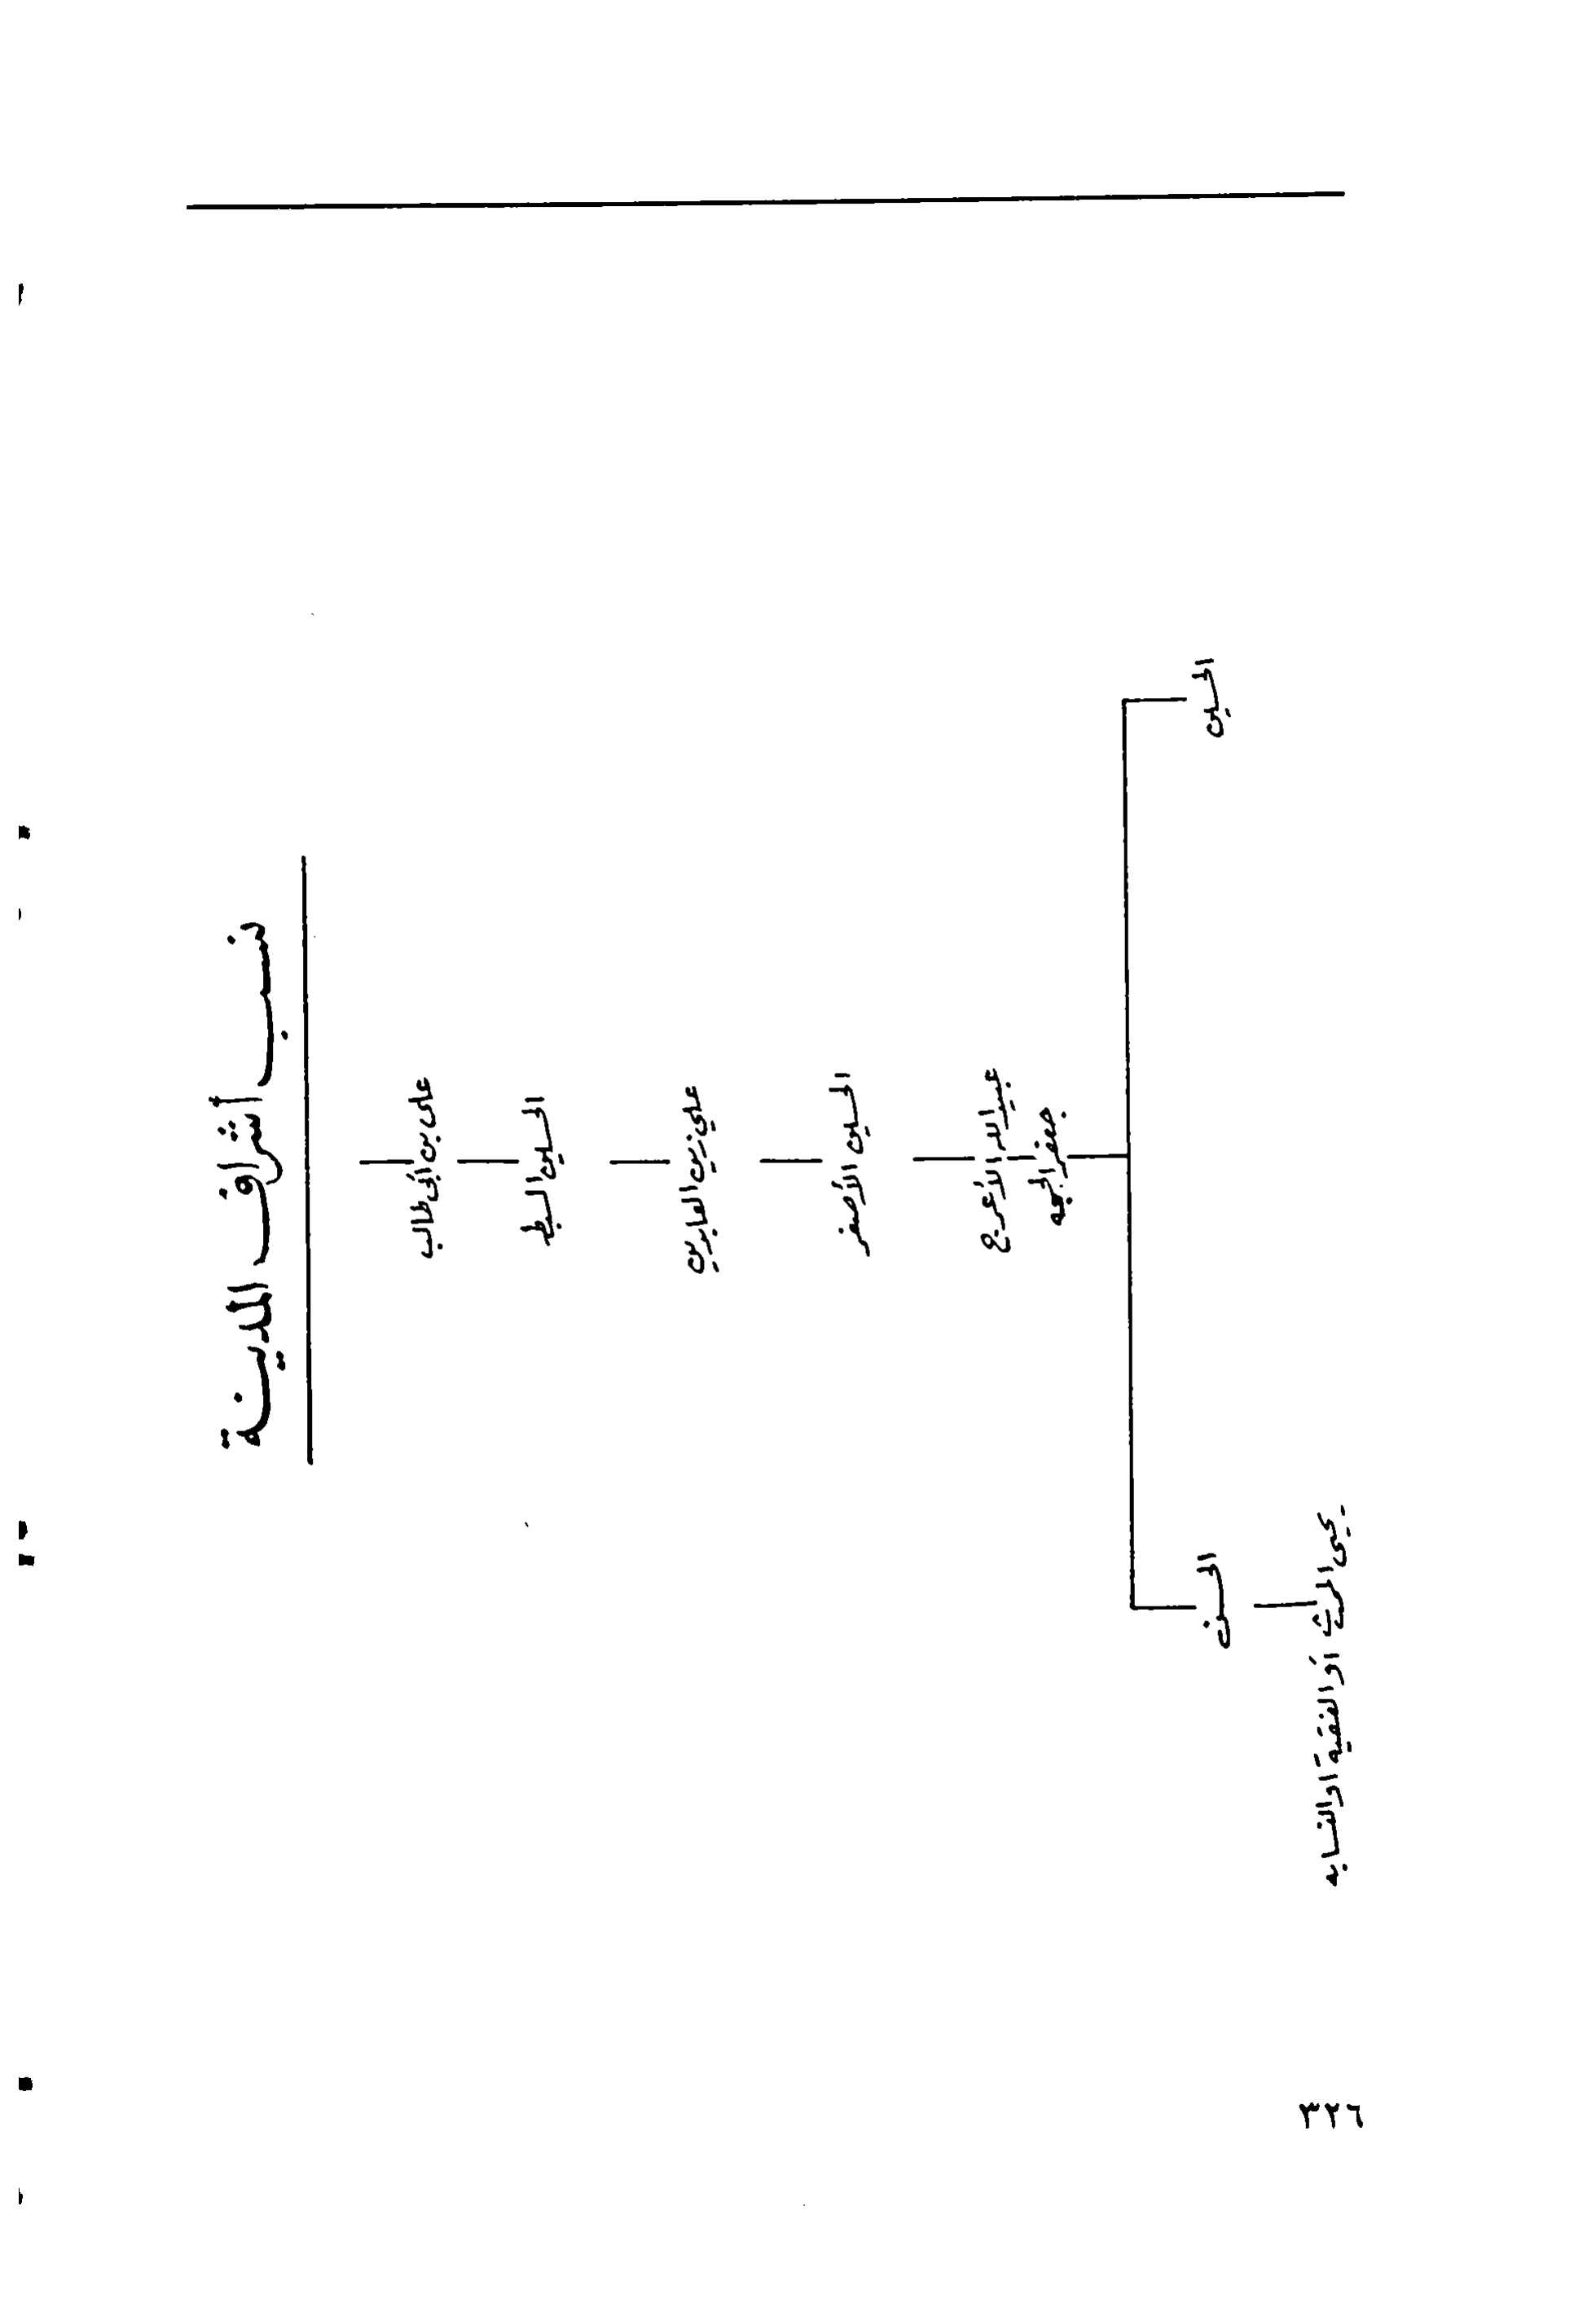 نسب أشراف المدينة
علي بن أبي طالب
الحسين السبط
علي زين العابدين
الحسين الأصغر
عبيد الله الأعرج
جعفر الحجه
الحسين
الحسن
يحيى المحدث أو الفقية أو النسابه
٣٢٦